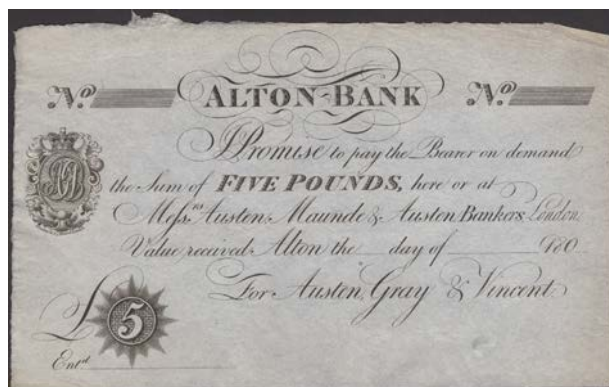 No. ALTON-BANK No.
I Promise to pay the Bearer on demand
the Sum of FIVE POUNDS, here or at
Messrs. Austen, Maunde & Austen Bankers London
Value received Alton the day of 180
For Austen, Gray & Vincent
£ 5
Entd.